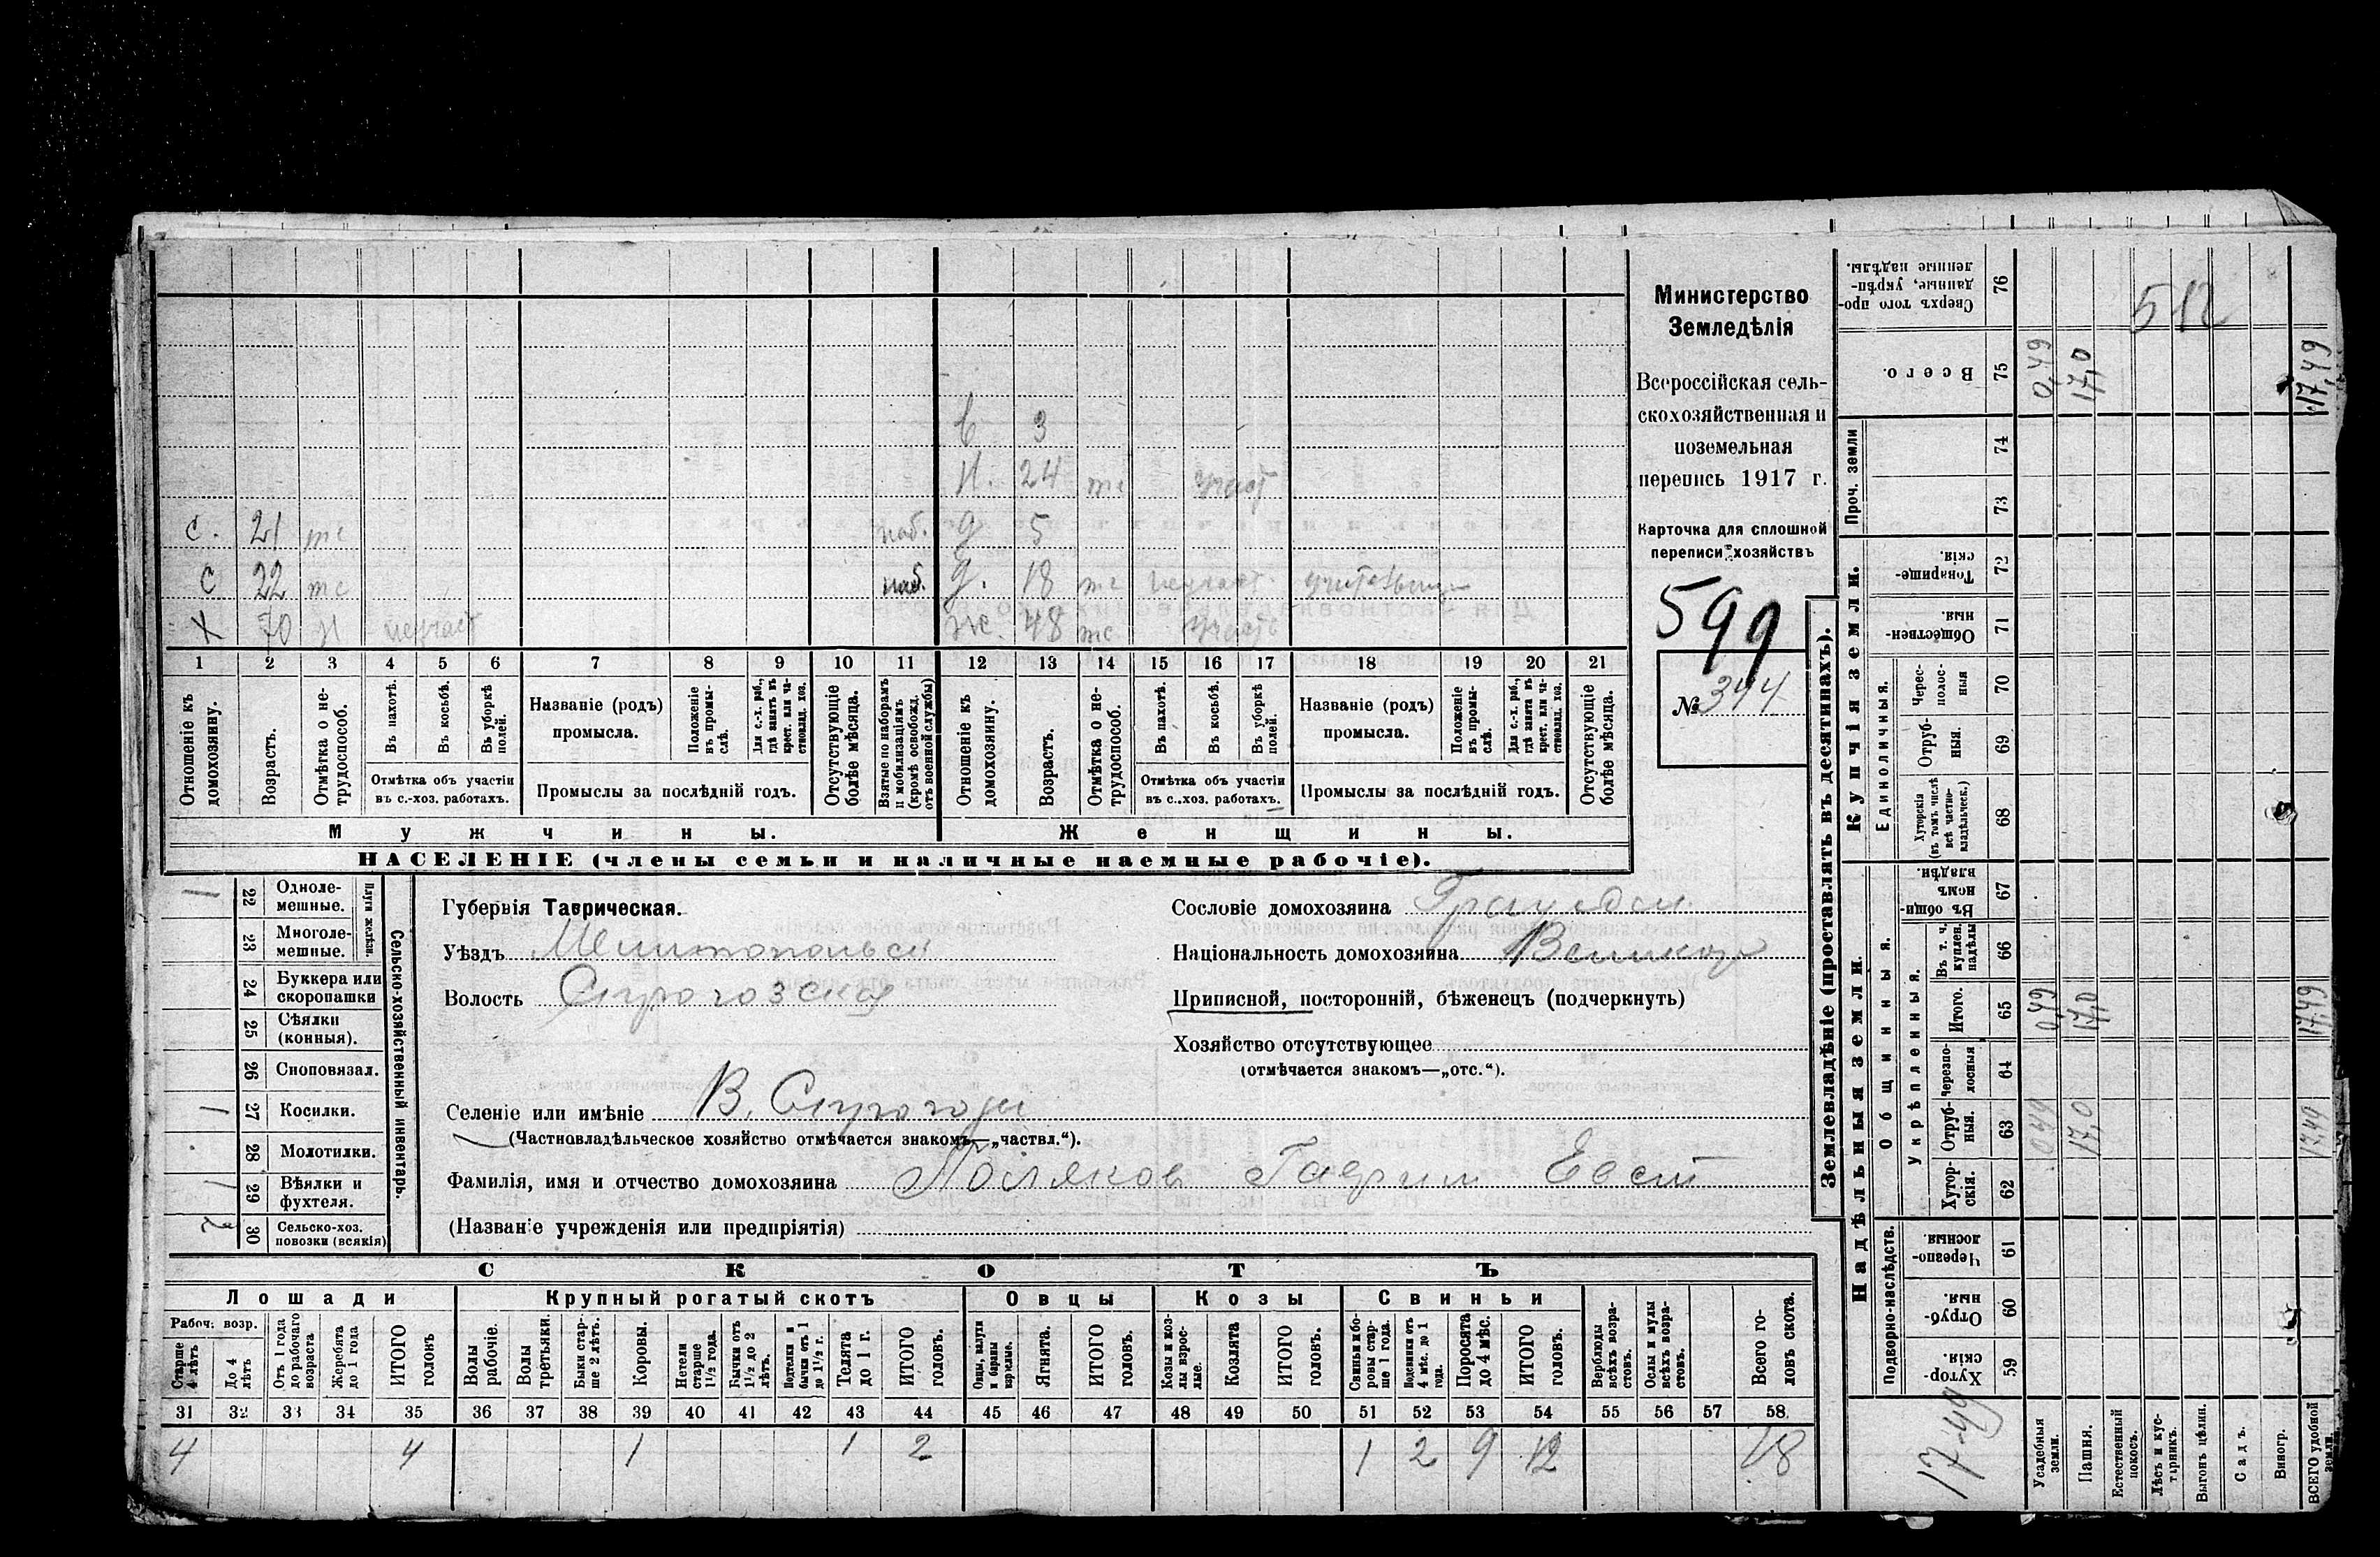 в 3
н. 24 тс участ
с. 21 тс моб. д 5
с 22 тс моб. д. 18 тс неучаст. учительниц
х 70 н неучаст ж. 48 тс участ
1 2 3 4 5 6 7 8 9 10 11 12 13 14 15 16 17 18 19 20 21
Отношеніе къ домохозяину.
Возрастъ.
Отмѣтка о не-трудоспособ.
Въ пахотѣ.
Въ косьбѣ.
Въ уборкѣ полей.
Отмѣтка объ участіи въ с.-хоз. работахъ.
Названіе (родъ) промысла.
Положеніе въ промы-слѣ.
Для с.-х. раб., гдѣ занятъ въ крест. или ча-стновлад. хоз.
Промыслы за послѣдній годъ.
Отсутствующіе болѣе мѣсяца.
Взятые по наборамъ и мобилизаціямъ (кромѣ освобожд. отъ военной службы)
Отношеніе къ домохозяину.
Возрастъ.
Отмѣтка о не-трудоспособ.
Въ пахотѣ.
Въ косьбѣ.
Въ уборкѣ полей.
Отмѣтка объ участіи въ с.-хоз. работахъ.
Названіе (родъ) промысла.
Положеніе въ промы-слѣ.
Для с.-х. раб., гдѣ занята въ крест. или ча-стновлад. хоз.
Промыслы за послѣдній годъ.
Отсутствующіе болѣе мѣсяца.
Мужчины. Женщины.
НАСЕЛЕНІЕ (члены семьи и наличные наемные рабочіе).
Министерство
Земледѣлія
Всероссійская сель-
скохозяйственная и
поземельная
перепись 1917 г.
Карточка для сплошной
переписи хозяйствъ
599
№ 344
Сельско-хозяйственный инвентарь.
Плуги желѣзн.
1 22 Одноле-мешные.
23 Многоле-мешные.
24 Буккера или скоропашки
25 Сѣялки (конныя).
26 Сноповязал.
1 27 Косилки.
28 Молотилки.
1 29 Вѣялки и фухтеля.
2 30 Сельско-хоз. повозки (всякія)
Губернія Таврическая.
Уѣздъ Мелитопольск
Волость Строгозская
Селеніе или имѣніе В. Строгозы
(Частновладѣльческое хозяйство отмѣчается знакомъ—„частвл.“).
Фамилія, имя и отчество домохозяина Поляков Гаврил Евст
(Названіе учрежденія или предпріятія)
Сословіе домохозяина Граждан.
Національность домохозяина Великор
Приписной, посторонній, бѣженецъ (подчеркнуть)
Хозяйство отсутствующее
(отмѣчается знакомъ—„отс.“).
СКОТЪ
Лошади Крупный рогатый скотъ Овцы Козы Свиньи
Рабоч. возр.
Старше 4 лѣтъ
До 4 лѣтъ
Отъ 1 года до рабочаго возраста
Жеребята до 1 года
ИТОГО головъ
Волы рабочіе.
Волы третьяки.
Быки стар-ше 2 лѣтъ.
Коровы.
Нетели старше 1½ года.
Бычки отъ 1½ до 2 лѣтъ.
Подтелки и бычки отъ 1 до 1½ г.
Телята до 1 г.
ИТОГО головъ.
Овцы, валухи и бараны взрослые.
Ягнята.
ИТОГО головъ.
Козы и коз-лы взрос-лые.
Козлята
ИТОГО головъ.
Свиньи и бо-ровы стар-ше 1 года.
Подсвинки отъ 4 мѣс. до 1 года.
Поросята до 4 мѣс.
ИТОГО головъ.
Верблюды всѣхъ возра-стовъ.
Ослы и мулы всѣхъ возра-стовъ.
Всего го-ловъ скота.
31 32 33 34 35 36 37 38 39 40 41 42 43 44 45 46 47 48 49 50 51 52 53 54 55 56 57 58.
4 4 1 1 2 1 2 9 12 18
Землевладѣніе (проставлять въ десятинахъ).
Надѣльныя земли. Купчія земли. Проч. земли
Подворно-наслѣдств. Общинныя. Укрѣпленныя. Единоличныя.
59 Хутор-скія
60 Отруб-ныя.
61 Черезпо-лосныя
62 Хутор-скія.
63 Отруб-ныя.
64 Черезпо-лосныя
65 Итого.
66 Въ т. ч. куплен. надѣлы
67 Въ общи-номъ владѣн.
68 Хуторскія (въ томъ числѣ всѣ частно-владѣльческ.)
69 Отруб-ныя.
70 Черес-полос-ныя
71 Обществен-ныя
72 Товарище-скія.
73
74
75 Всего.
76 Сверхъ того про-данные, укрѣп-ленные надѣлы.
Усадебныя земли.
Пашня.
Естественный покосъ.
Лѣсъ и кус-тарникъ.
Выгонъ цѣлин.
Садъ.
Виногр.
ВСЕГО удобной земли.
17.49
0,49 17,0 17,49
0,49 17,0 17,49
0,49 17,0 17,49
512